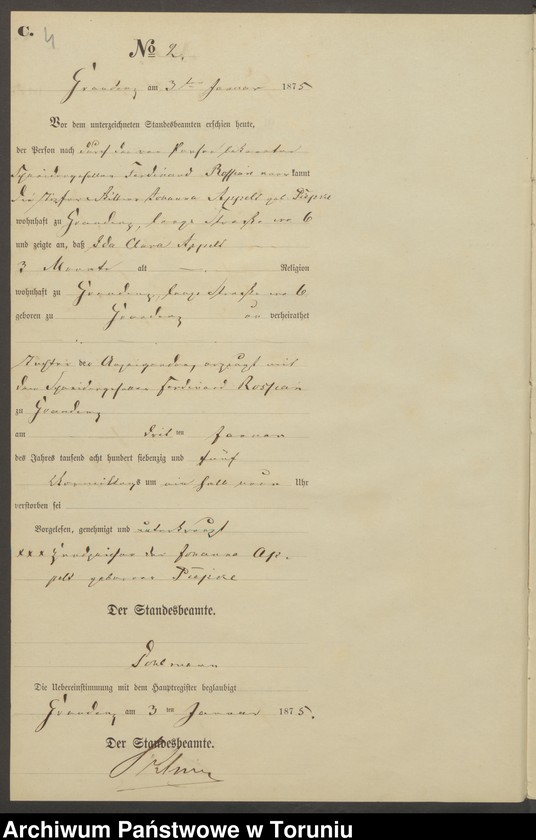 C. 4
No 2.
Graudenz am 3ten Januar 1875
Vor dem unterzeichneten Standesbeamten erschien heute,
der Person nach durch den von Person bekannten
Schneidergesellen Ferdinand Rossian anerkannt
die Johanna Appelt geb. Piepke
wohnhaft zu Graudenz, lange Straße no 6
und zeigte an, daß Ida Clara Appelt
3 Monate alt Religion
wohnhaft zu Graudenz, lange Straße no 6
geboren zu Graudenz un verheirathet
Tochter der Anzeigenden, erzeugt mit
dem Schneidergesellen Ferdinand Rossian
zu Graudenz
am dritten Januar
des Jahres tausend acht hundert siebenzig und fünf
Vormittags um ein halb neun Uhr
verstorben sei
Vorgelesen, genehmigt und unterkreuzt
xxx Handzeichen der Johanna Ap-
pelt geborene Piepke
Der Standesbeamte.
Pohlmann
Die Uebereinstimmung mit dem Hauptregister beglaubigt
Graudenz am 3ten Januar 1875.
Der Standesbeamte.
Archiwum Państwowe w Toruniu